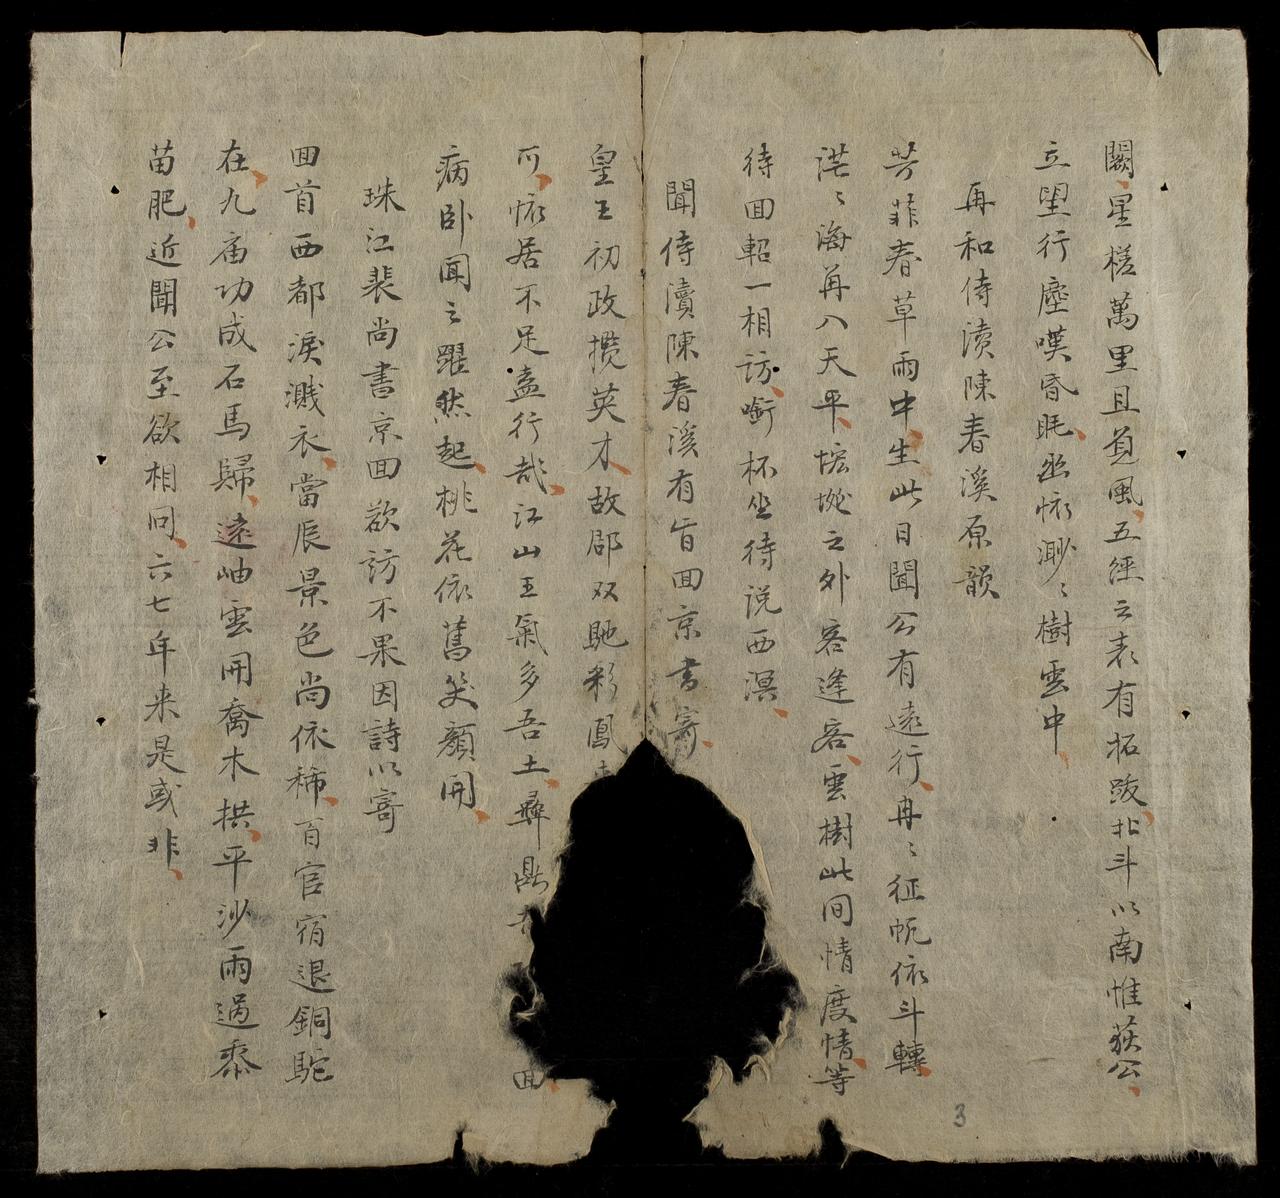 闕星槎萬里且覔風五經之表有拓跋北斗以南惟荻公
立望行塵嘆昏眊悠悵渺〻樹雲中
再和侍瀆陳春溪原韻
芳菲春草雨中生此日聞公有遠行冉〻征帆依斗轉
茫〻海再八天平埃之外客逢客雲樹此间情度情等
待回軺一相訪啣杯坐待说西溟
聞侍瀆陳春溪有旨回京書寄
皇王初政攬英才故郡双馳彩鳯
可悵居不足盍行哉江山王氣多吾土彝鼎 回
病卧聞之躍然起桃花依舊笑顏開
珠江裴尚書京回欲訪不果因詩以寄
回首西都淚濺衣當辰景色尚依稀百官宿退銅駝
在九庙功成石馬歸遠岫雲開喬木拱平沙雨過黍
苗肥近聞公至欲相问六七年来是或非
3